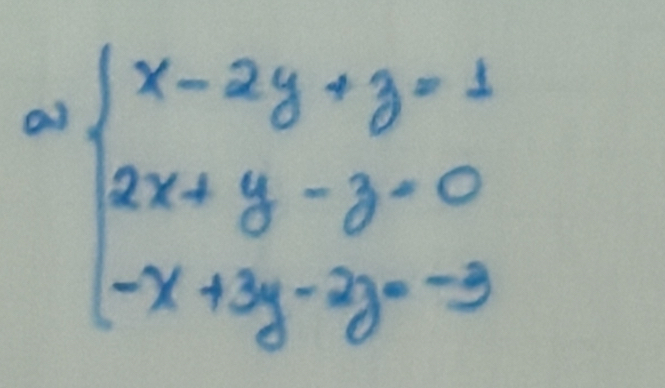 a) x - 2y + z = 1
2x + y - z = 0
-x + 3y - 2z = -3